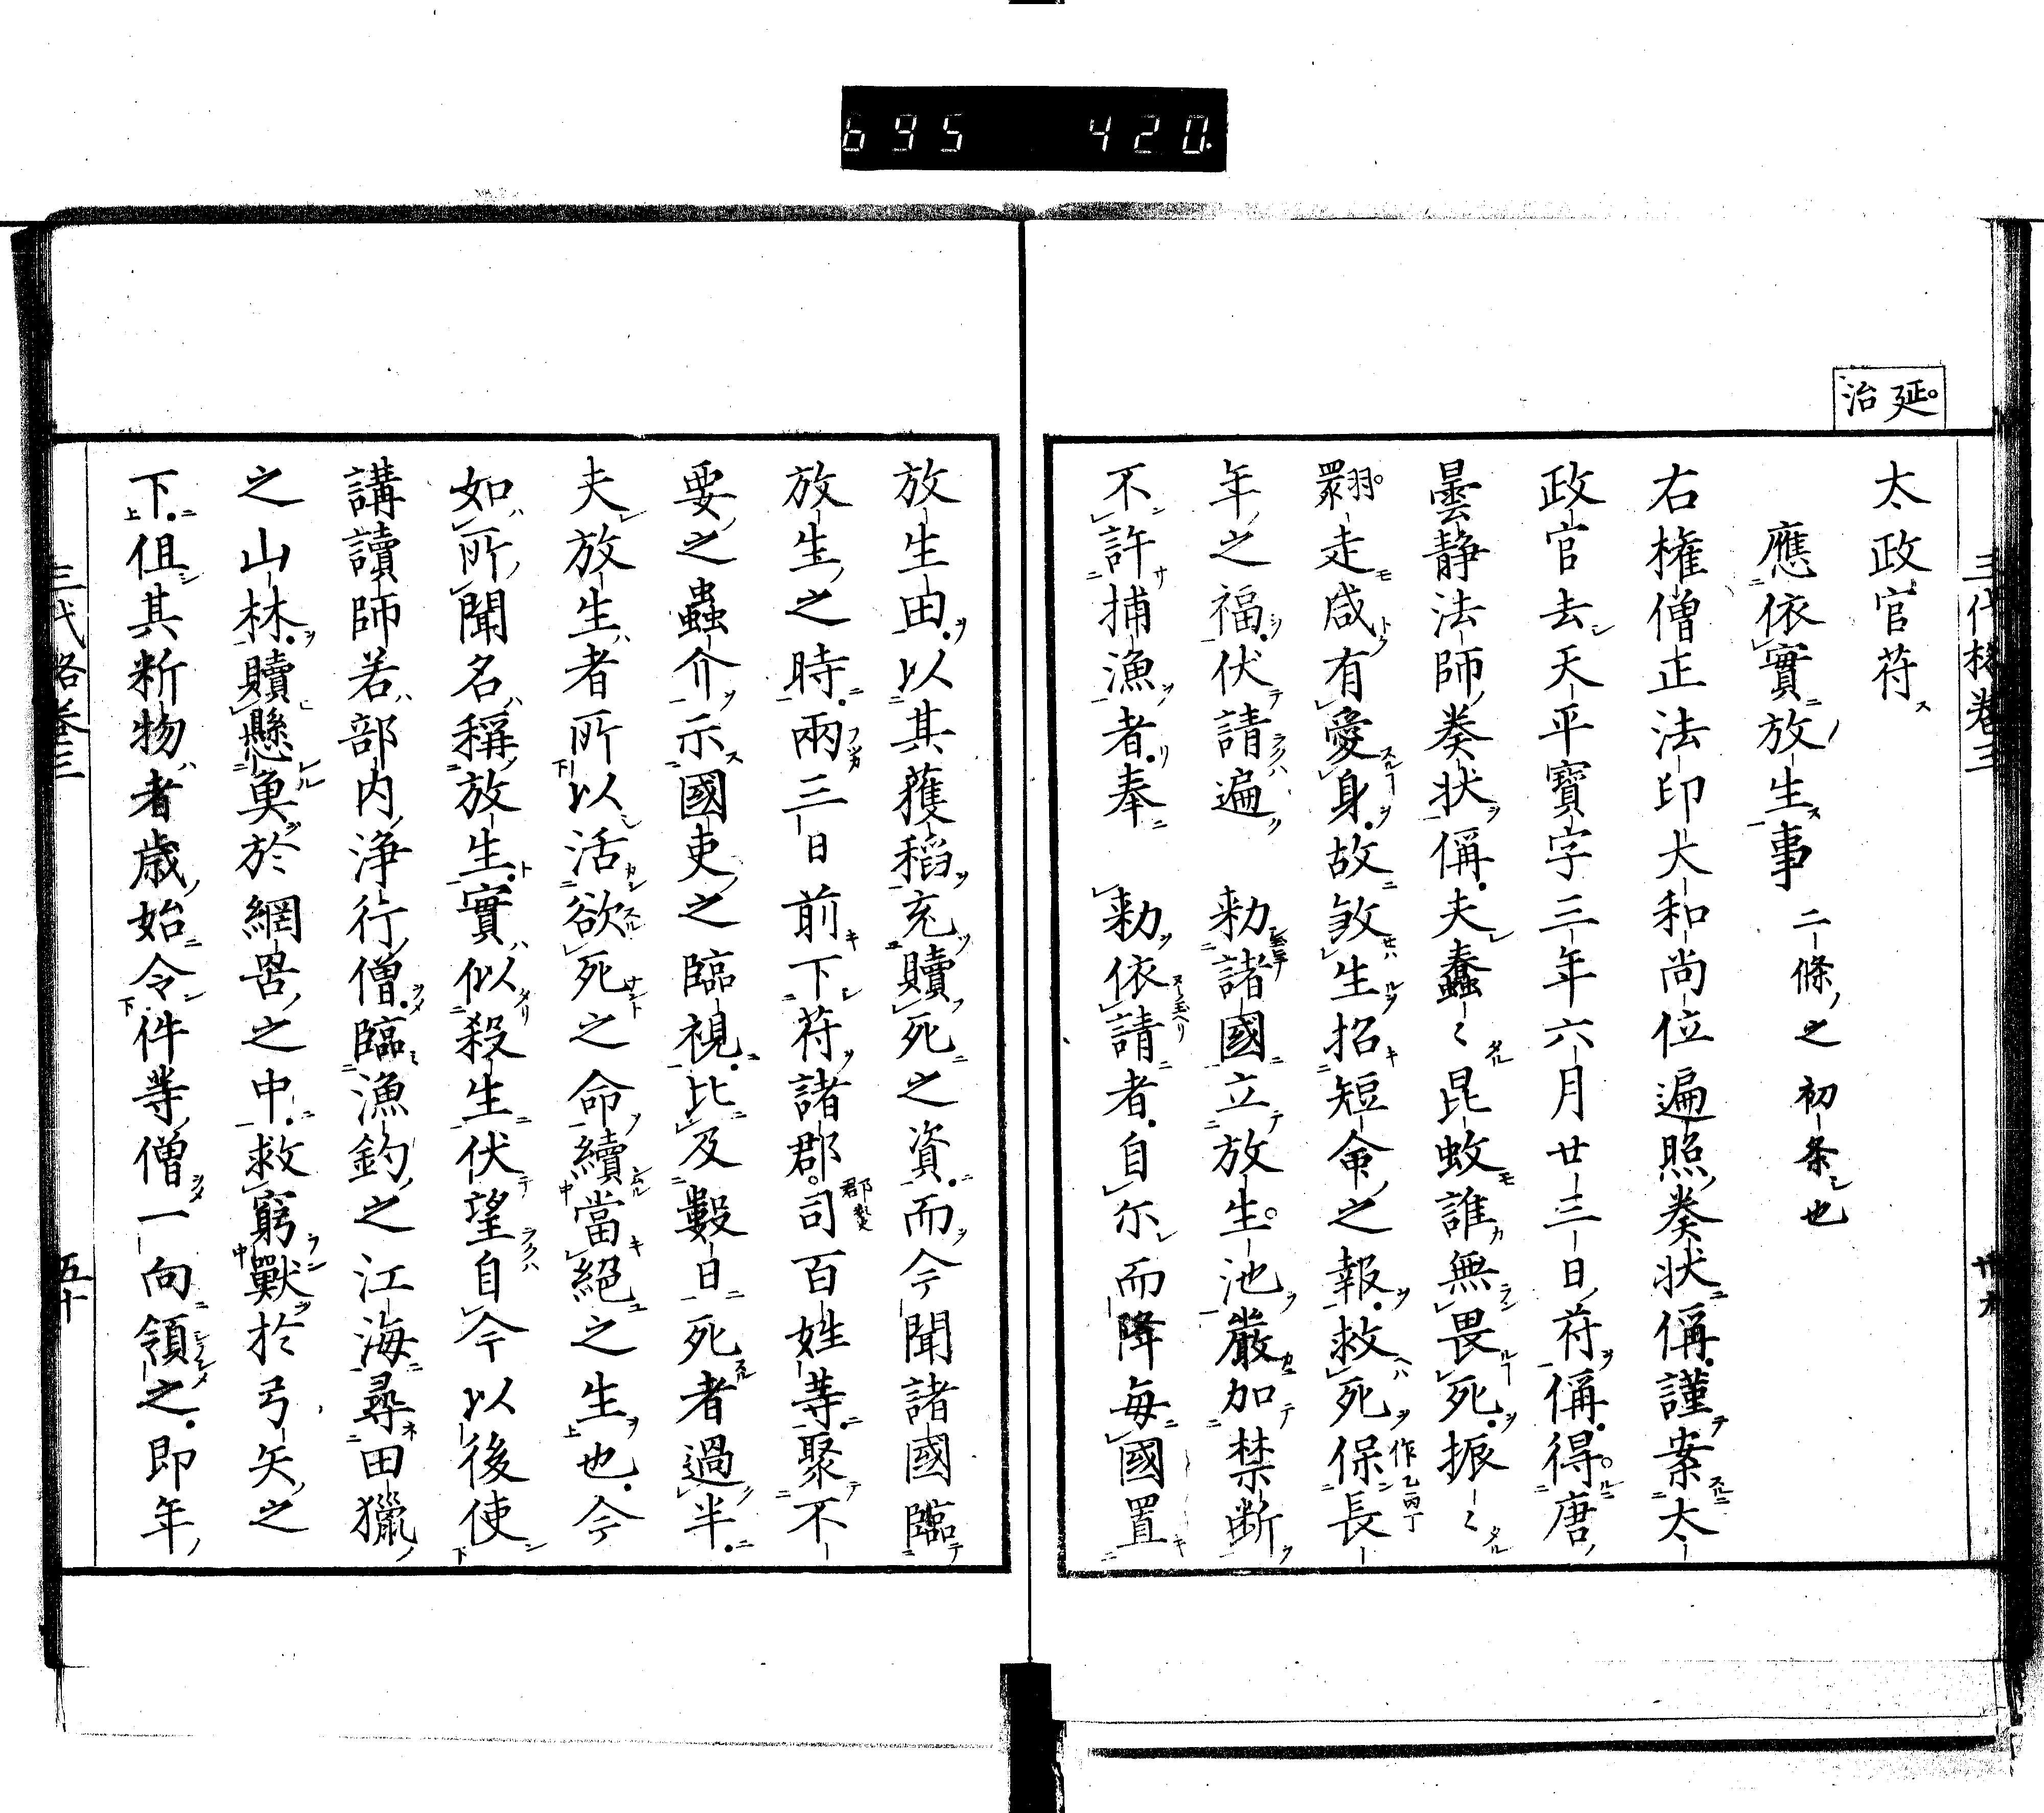 695 420
延治
三代格卷三
太政官符
應依實放生事 二條之初条也
右權僧正法印大和尚位遍照奏状偁謹案太
政官去天平寶字三年六月廿三日符偁得唐
曇静法師奏状偁夫蠢〻昆蚊誰無畏死振〻
翾走咸有愛身故煞生招短命之報救死保長
作乙丙丁
年之福伏請遍 勅諸國立放生池嚴加禁断
不許捕漁者奉 勅依請者自尓而降毎國置
放生田以其獲稻充贖死之資而今聞諸國臨
放生之時兩三日前下符諸郡司百姓等聚不
要之蟲介示國吏之臨視比及數日死者過半
夫放生者所以活欲死之命續當絕之生也今
如所聞名稱放生實似殺生伏望自今以後使
講讀師若部内浄行僧臨漁釣之江海尋田獵
之山林贖懸魚於網罟之中救窮獸於弓矢之
下但其断物者歳始令件等僧一向領之即年
三代格卷三
五十